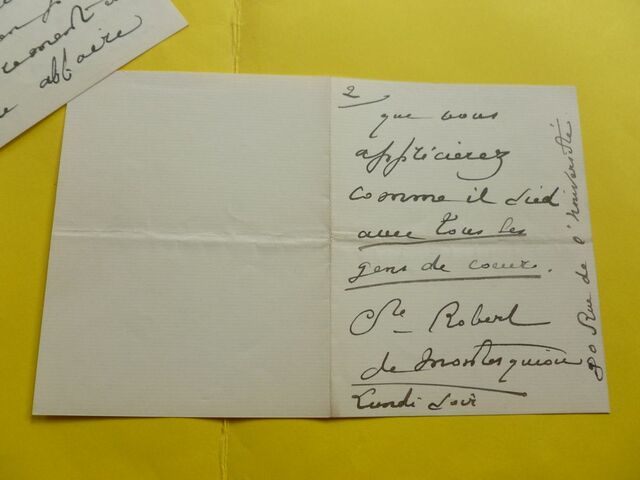 rement
abbaïre
2
que vous
apprécierez
comme il sied
avec tous les
gens de coeur.
Cte Robert
de Montesquiou
Lundi soir
80 Rue de l'Université